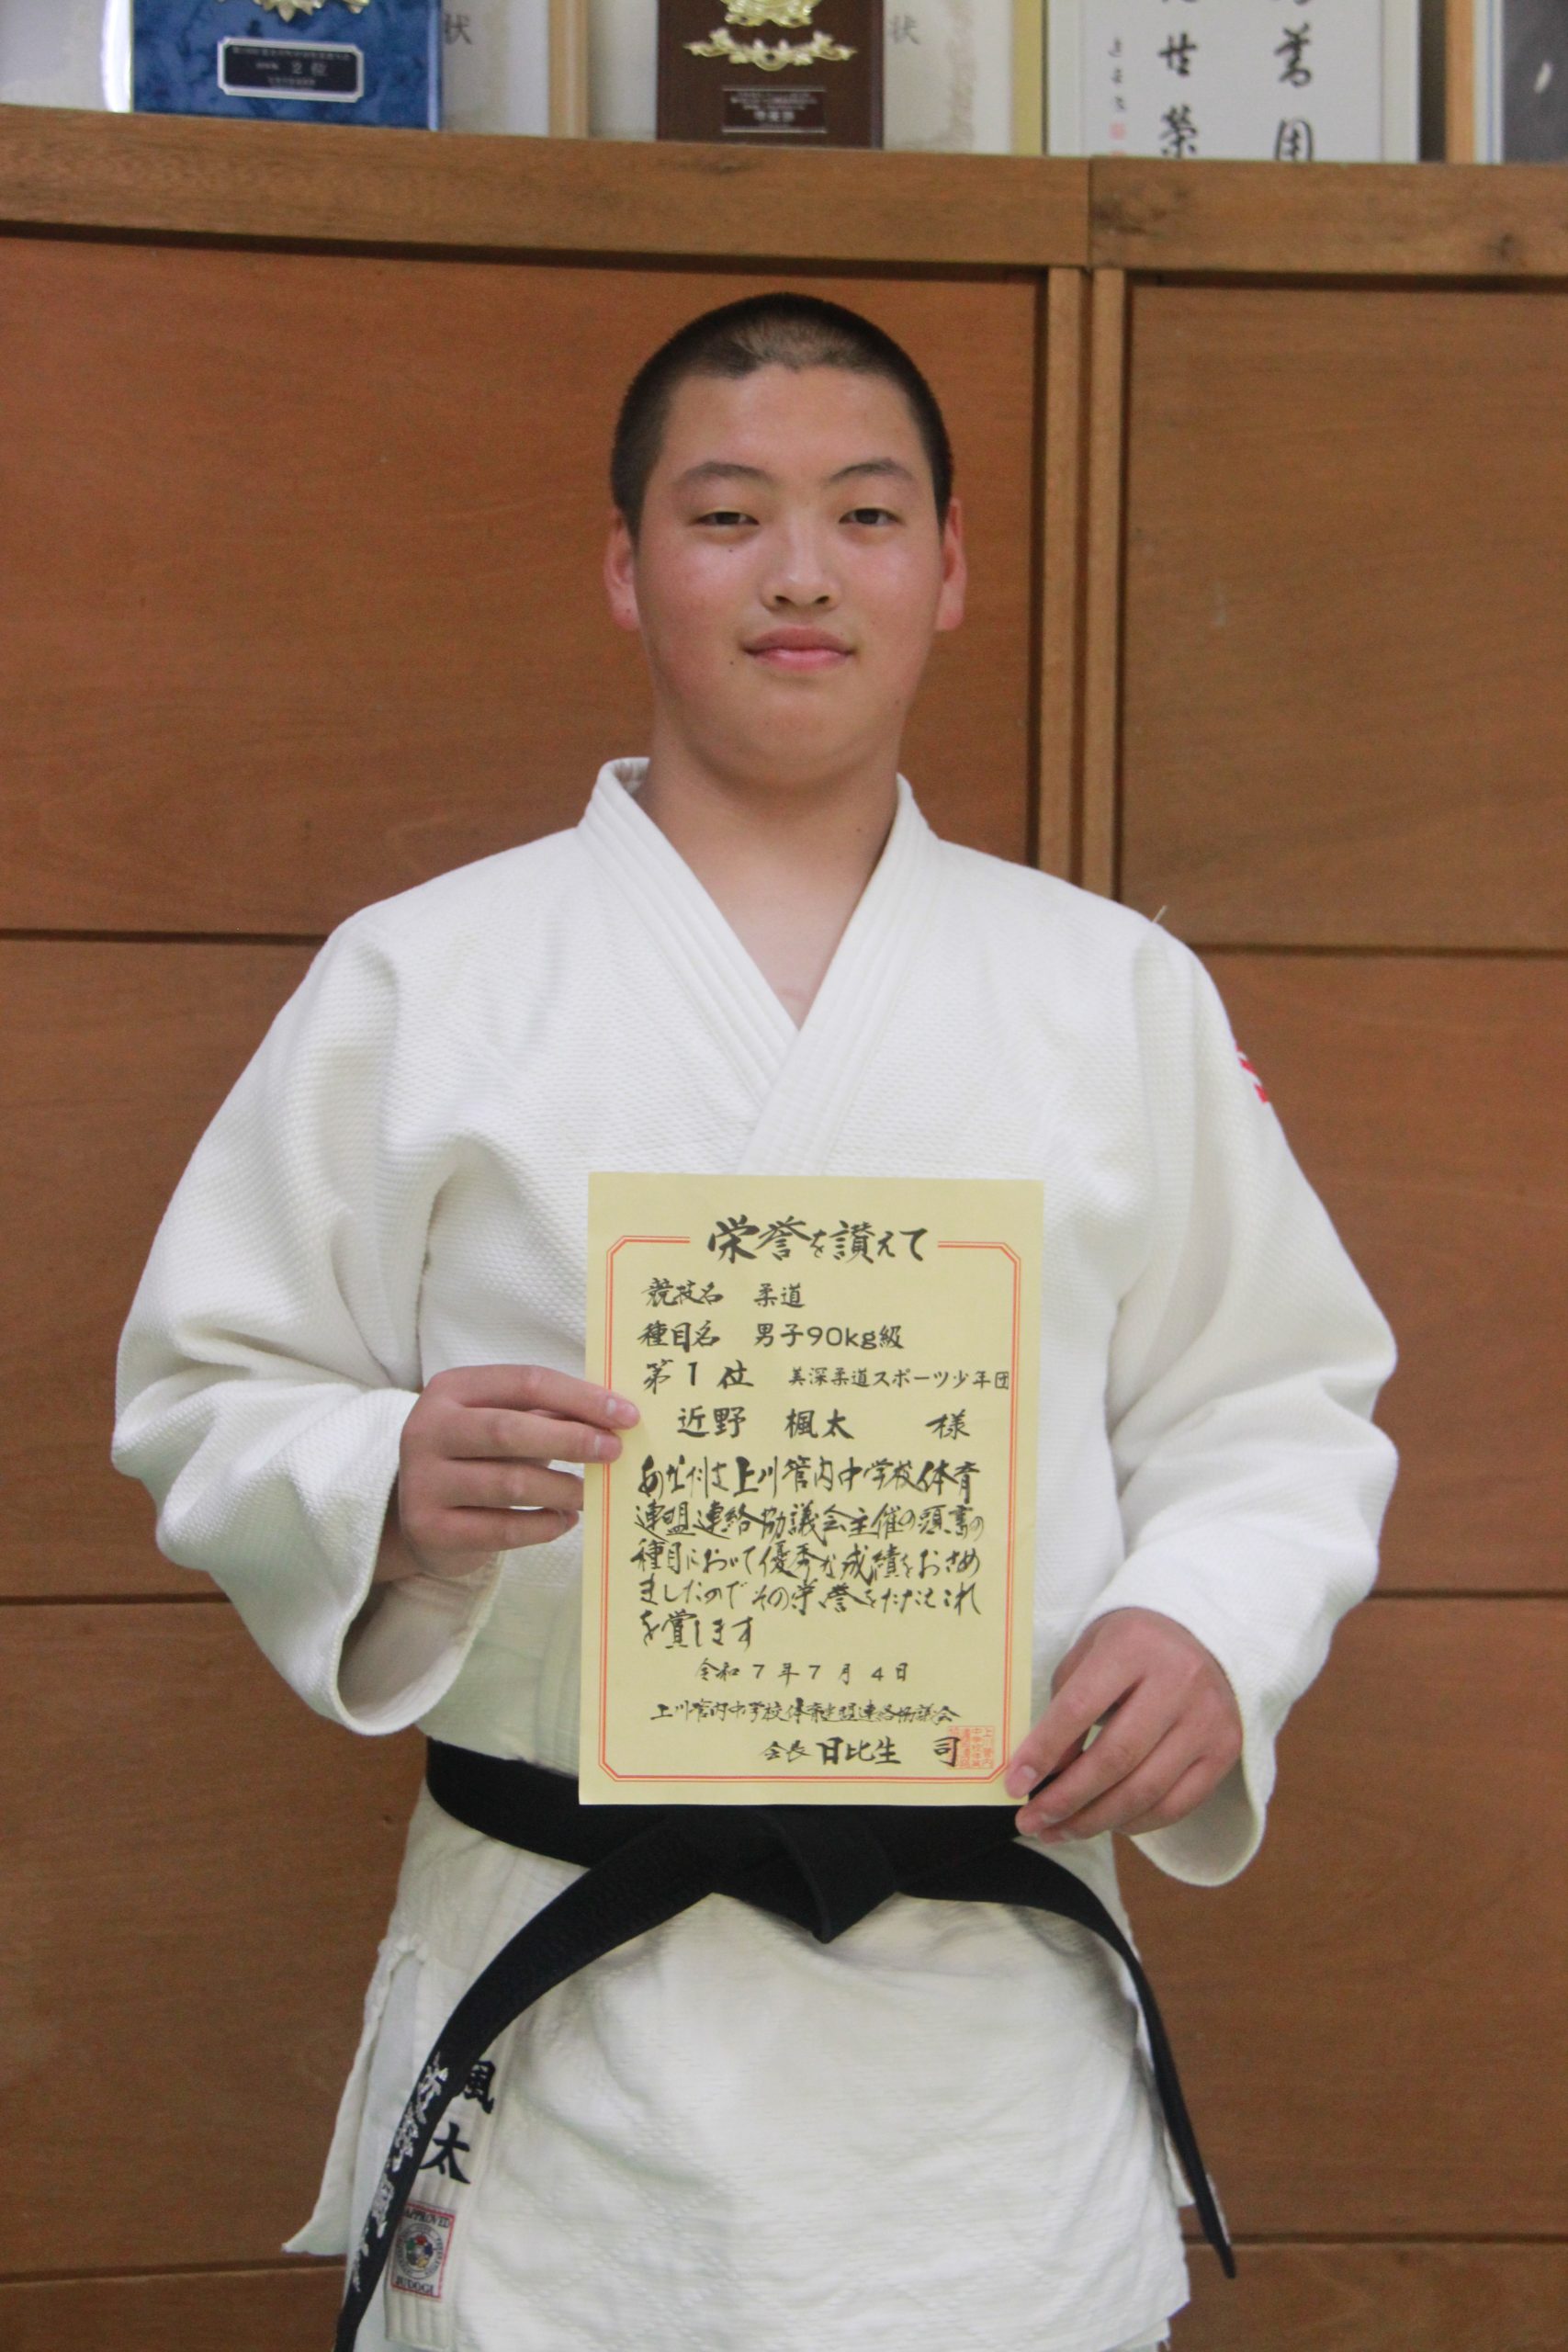 状
状
２位
準優勝
栄誉を讃えて
競技名　柔道
種目名　男子90kg級
第１位　美深柔道スポーツ少年団
近野　楓太　様
あなたは上川管内中学校体育
連盟連絡協議会主催の頭書の
種目において優秀な成績をおさめ
ましたのでその栄誉をたたえこれ
を賞します
令和７年７月４日
上川管内中学校体育連盟連絡協議会
会長 日比生　司
楓太
APPROVED
JUDOGI